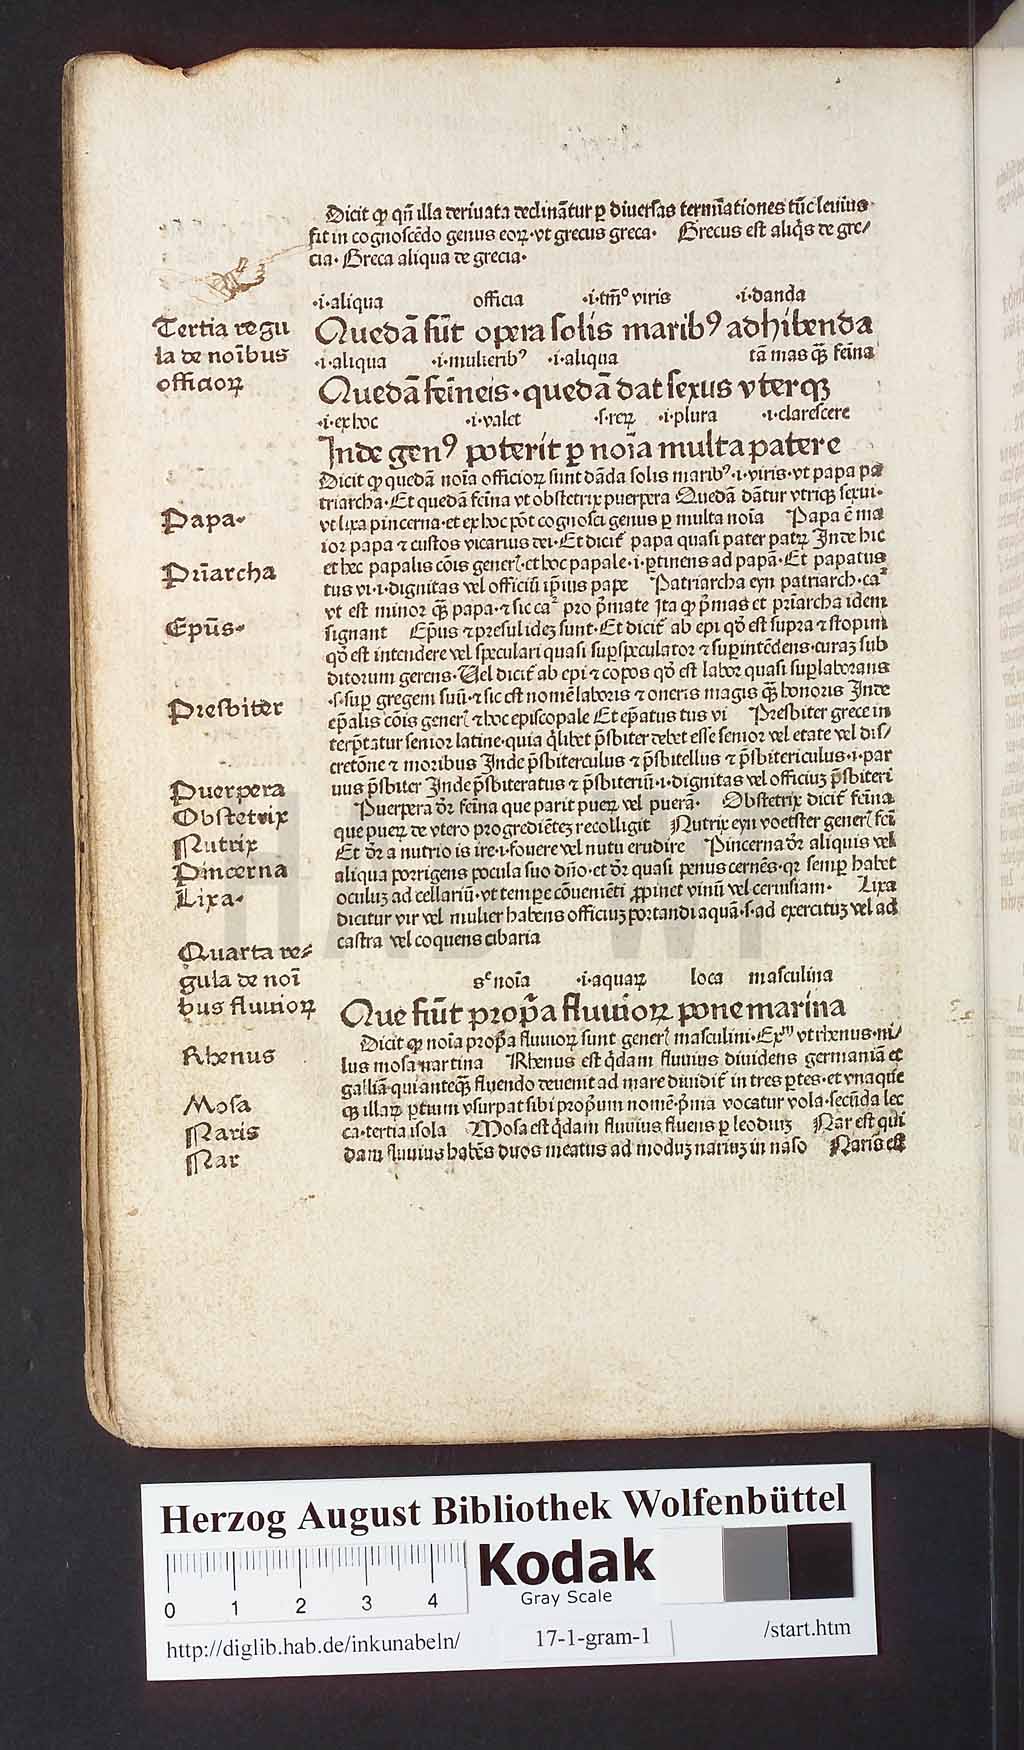 Dicit ꝙ qn̄ illa deriuata declinātur ꝑ diuersas termīationes tūc leuius
fit in cognoscēdo genus eoꝝ·vt grecus greca· Grecus est aliq̄s de gre/
cia· Greca aliqua de grecia·
·i·aliqua officia ·i·tm̄° viris ·i·danda
Tertia regu
la de noībus
officioꝝ
Quedā sūt opera solis maribꝰ adhibenda
·i·aliqua ·i·mulieribꝰ ·i·aliqua tā mas qꝫ̄ feīna
Quedā feīneis·quedā dat sexus vterqꝫ
·i·ex hoc ·i·valet ·s·reꝝ ·i·plura ·i·clarescere
Inde genꝰ poterit ꝑ noīa multa patere
Dicit ꝙ quedā noīa officioꝝ sunt dāda solis maribꝰ·i·viris·vt papa pa
triarcha·Et quedā feīna vt obstetrix puerpera Quedā dātur vtriqꝫ sexui·
Papa·
vt lixa pincerna·et ex hoc pōt cognosci genus ꝑ multa noīa Papa ē ma
ior papa ⁊ custos vicarius dei·Et dicit̄ papa quasi pater patꝝ Inde hic
et hec papalis cōis gener̄·et hoc papale·i·ꝑtinens ad papā·Et papatus
Pr̄iarcha
tus vi·i·dignitas vel officiū ip̄ius pape Patriarcha eyn patriarch·ca²
vt est minor qꝫ̄ papa·⁊ sic ca² pro p̄mate Ita ꝙ p̄mas et pr̄iarcha idem
Ep̄us·
signant Ep̄us ⁊ presul ideꝫ sunt·Et dicit̄ ab epi qd̄ est supra ⁊ stopin
qd̄ est intendere vel speculari quasi suꝑspeculator ⁊ suꝑintēdens·curaꝫ sub
ditorum gerens·Uel dicit̄ ab epi ⁊ copos qd̄ est labor quasi suꝑlaborans
Presbiter
·s·suꝑ gregem suū·⁊ sic est nomē laboris ⁊ oneris magis qꝫ̄ honoris Inde
ep̄alis cōis gener̄ ⁊ hoc episcopale Et ep̄atus tus vi Presbiter grece in
terp̄tatur senior latine·quia q̄libet p̄sbiter debet esse senior vel etate vel dis/
cretōne ⁊ moribus Inde p̄sbiterculus ⁊ p̄sbitellus ⁊ p̄sbitericulus·i·par
uus p̄sbiter Inde p̄sbiteratus ⁊ p̄sbiteriū·i·dignitas vel officiuꝫ p̄sbiteri
Puerpera
Puerpera dr̄ feīna que parit pueꝝ vel puerā· Obstetrix dicit̄ feīna
Obstetrix
que pueꝝ de vtero progrediēteꝫ recolligit Nutrix eyn voetster gener̄ feī
Nutrix
Et dr̄ a nutrio is ire·i·fouere vel nutu erudire Pincerna dr̄ aliquis vel
Pincerna
aliqua porrigens pocula suo dn̄o·et dr̄ quasi penus cernēs·qr semꝑ habet
Lixa·
oculuꝫ ad cellariū·vt temꝑe cōuenieti ꝓpinet vinū vel ceruisiam· Lixa
dicitur vir vel mulier habens officiuꝫ portandi aquā·s·ad exercituꝫ vel ad
castra vel coquens cibaria
Quarta re⸗
gula de noī
bus fluuioꝝ
sᵉ noīa ·i·aquaꝝ loca masculina
Que fiūt prop̄a fluuioꝝ pone marina
Dicit ꝙ noīa prop̄a fluuioꝝ sunt gener̄ masculini·Exᵐ vt rhenus·ni/
Rhenus
lus mosa nartina Rhenus est q̄dam fluuius diuidens germaniā et
galliā·qui anteqꝫ̄ fluendo deuenit ad mare diuidit̄ in tres ꝑtes·et vnaque
Mosa
qꝫ illaꝝ ꝑtium vsurpat sibi prop̄um nomē·p̄ma vocatur vola·secūda lec
Naris
ca·tertia isola Mosa est q̄dam fluuius fluens ꝑ leodiuꝫ Nar est qui
Nar
dam fluuius habēs duos meatus ad moduꝫ nariuꝫ in naso Naris est
Herzog August Bibliothek Wolfenbüttel
Kodak
Gray Scale
0 1 2 3 4
http://diglib.hab.de/inkunabeln/ 17-1-gram-1 /start.htm